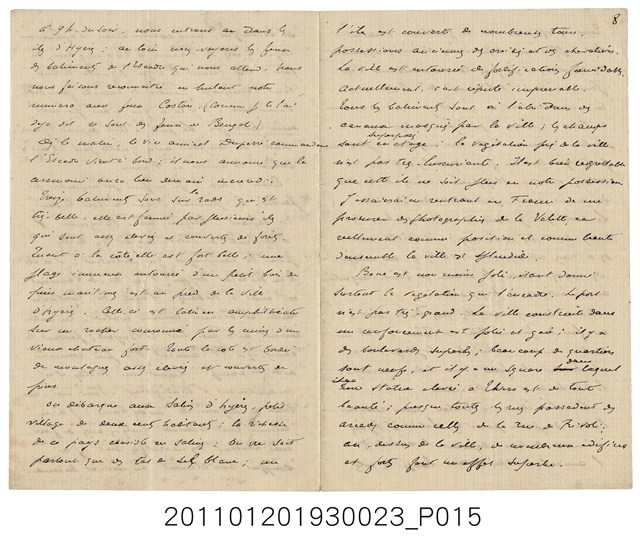 à 9h. du soir, nous entrons dans les
îles d'Hyères ; au loin nous voyons les feux
des bâtiments de l'Escadre qui nous attend. Nous
nous faisons reconnaître en hélant notre
numéro aux feux Coston (Comme je te l'ai
déjà dit ce sont des feux de Bengale)
Dès le matin le Vice amiral Duperré commandant
l'Escadre vient à bord ; il nous annonce que la
cérémonie aura lieu demain mercredi.
Treize bâtiments sont sur la rade qui est
très belle, elle est fermée par plusieurs îles
qui sont assez élevées et couvertes de forêts.
Quant à la côte, elle est fort belle ; une
plage immense entourée d'un petit bois de
pins maritimes est au pied de la ville
d'Hyères. Celle-ci est bâtie en amphithéâtre
sur un rocher couronné par les ruines d'un
vieux château fort. Toute la côte est bordée
de montagnes assez élevées et couvertes de
pins
On débarque aux Salins d'Hyères, petit
village de deux cents habitants ; la richesse
de ce pays consiste en salines ; on ne voit
partout que des tas de sel blanc ; en
8
l'île est couverte de nombreuses tours,
possessions anciennes des croisés et des chevaliers.
La ville est entourée de fortifications formidables.
Actuellement, c'est réputé imprenable.
Tous les bâtiments sont à l'abri dans des
canaux masqués par la ville ; les champs
sont en étage superposés : la végétation près de la ville
n'est pas très luxuriante. Il est bien regrettable
que cette île ne soit plus en notre possession
J'essaierai en rentrant en France de me
procurer des photographies de la Valette car
réellement comme position et comme beauté
d'ensemble la ville est splendide.
Bône est non moins joli, étant donné
surtout la végétation qui l'encadre. Le port
n'est pas très grand. La ville construite dans
un enfoncement est jolie et gaie ; il y a
des boulevards superbes ; beaucoup de quartiers
sont neufs, et il y a un square dans lequel
une statue élevée à Thiers est de toute
beauté ; presque toutes les rues possèdent des
arcades comme celles de la rue de Rivoli.
Au dessus de la ville, de nombreux édifices
et forts font un effet superbe.
201101201930023_P015